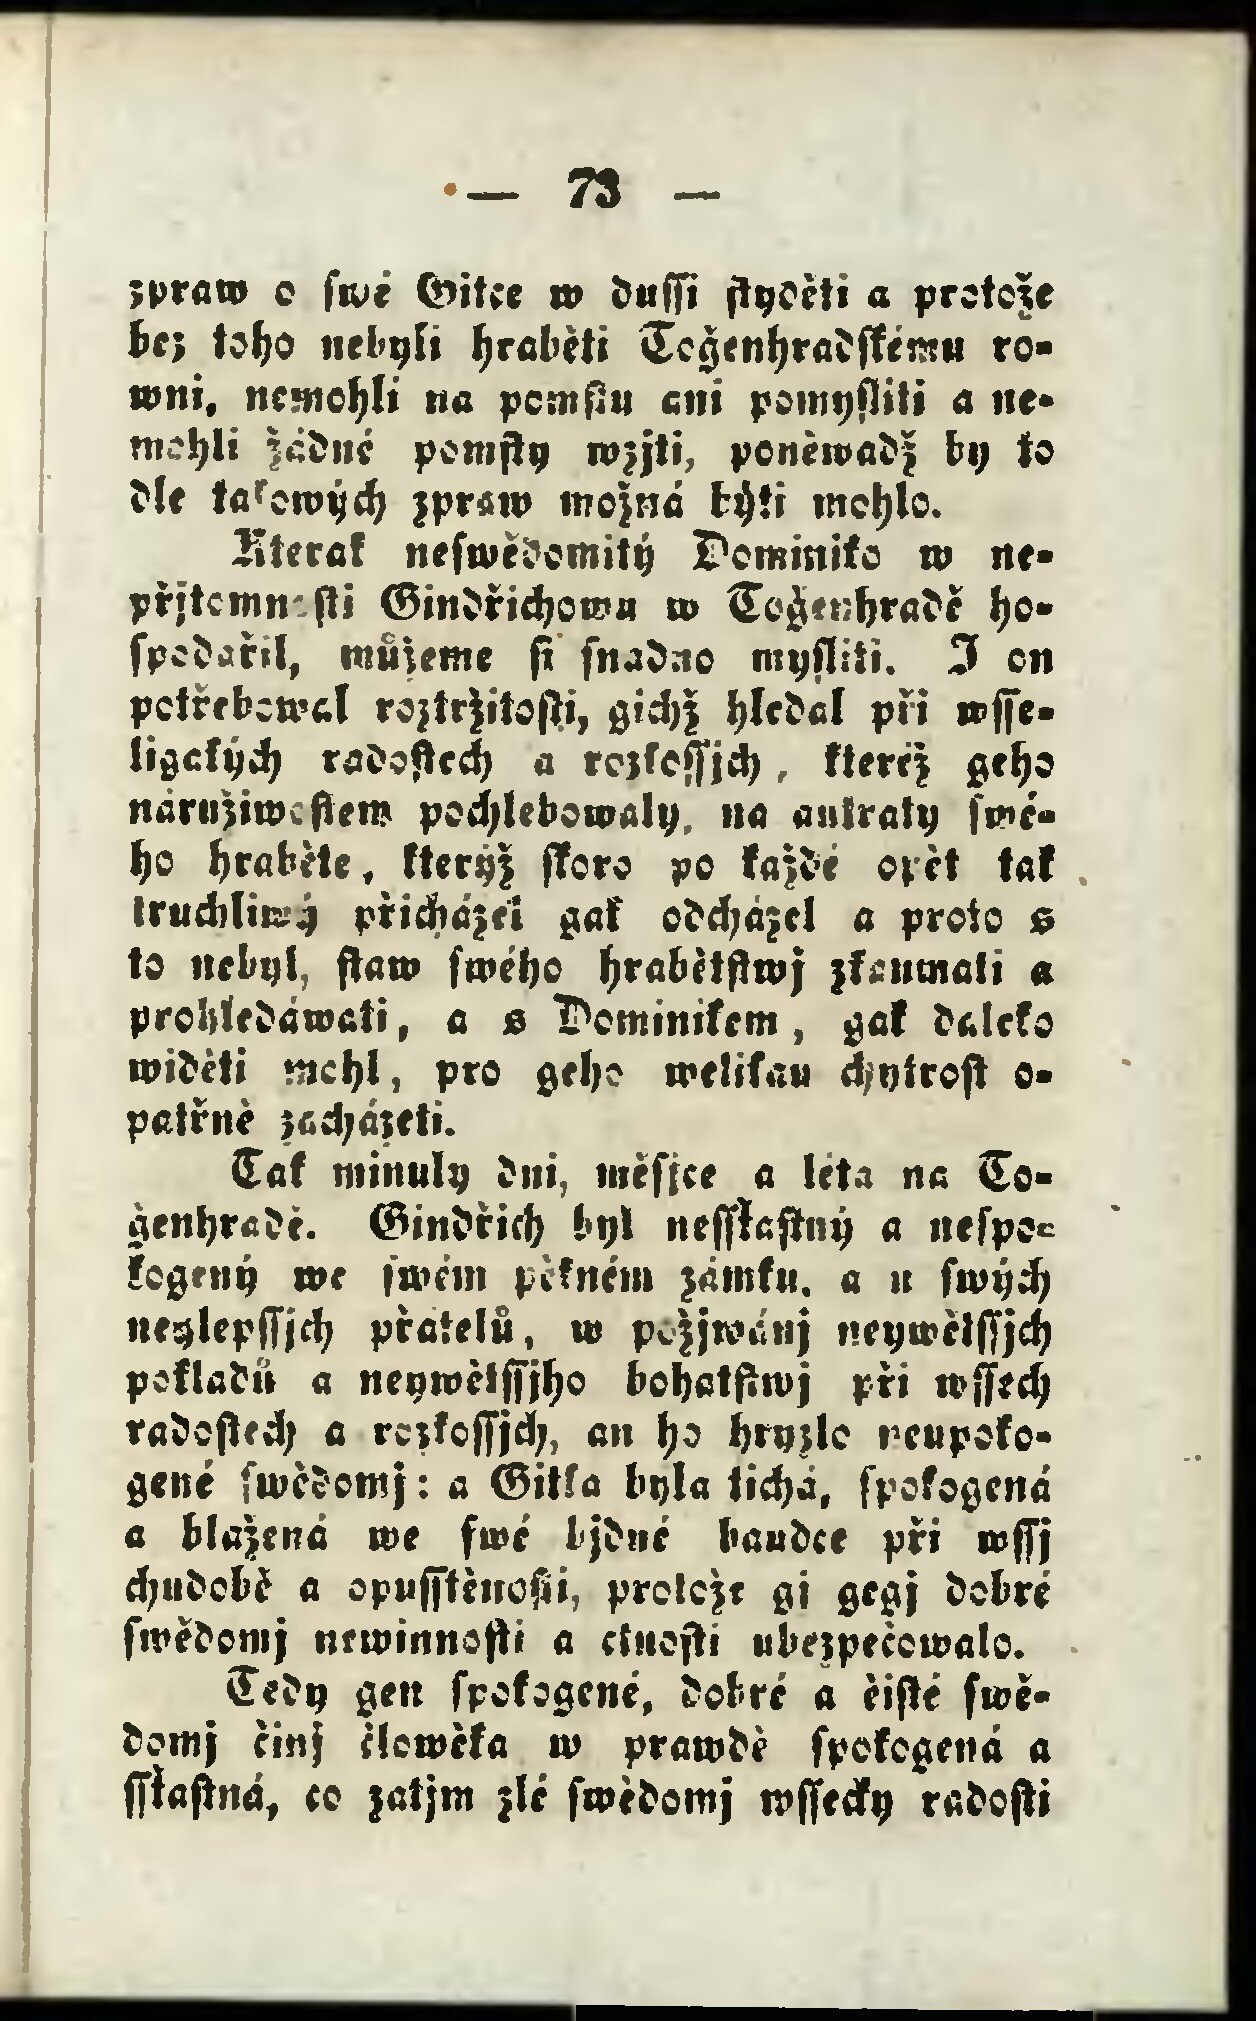 — 73 —
zpraw o swé Gitce w dussi styděti a protože
bez toho nebyli hraběti Toğenhradskému ro-
wni, nemohli na pomstu ani pomysliti a ne-
mohli žádné pomsty wzjti, poněwadž by to
dle takowých zpraw možná býti mohlo.
Kterak neswědomitý Dominiko w ne-
přjtomnosti Gindřichowu w Toğenhradě ho-
spodařil, můžeme si snadno mysliti. I on
potřebowal roztržitosti, gichž hledal při wsse-
ligakých radostech a rozkossjch, kteréž geho
náružiwostem pochlebowaly, na autraty swé-
ho hraběte, kterýž skoro po každé opět tak
truchliwý přicházel gak odcházel a proto s
to nebyl, staw swého hrabětstwj zkaumati a
prohledáwati, a s Dominikem, gak daleko
widěti mohl, pro geho welikau chytrost o-
patřně zacházeti.
Tak minuly dni, měsjce a léta na To-
ğenhradě. Gindřich byl nessťastný a nespo-
kogený we swém pěkném zámku, a u swých
neylepssjch přátelů, w požjwánj neywětssjch
pokladů a neywětssjho bohatstwj při wssech
radostech a rozkossjch, an ho hryzlo neupoko-
gené swědomj: a Gitka byla tichá, spokogená
a blažená we swé bjdné baudce při wssj
chudobě a opusstěnosti, protože gi gegj dobré
swědomj newinnosti a ctnosti ubezpečowalo.
Tedy gen spokogené, dobré a čisté swě-
domj činj člowěka w prawdě spokogená a
ssťastná, co zatjm zlé swědomj wssecky radosti